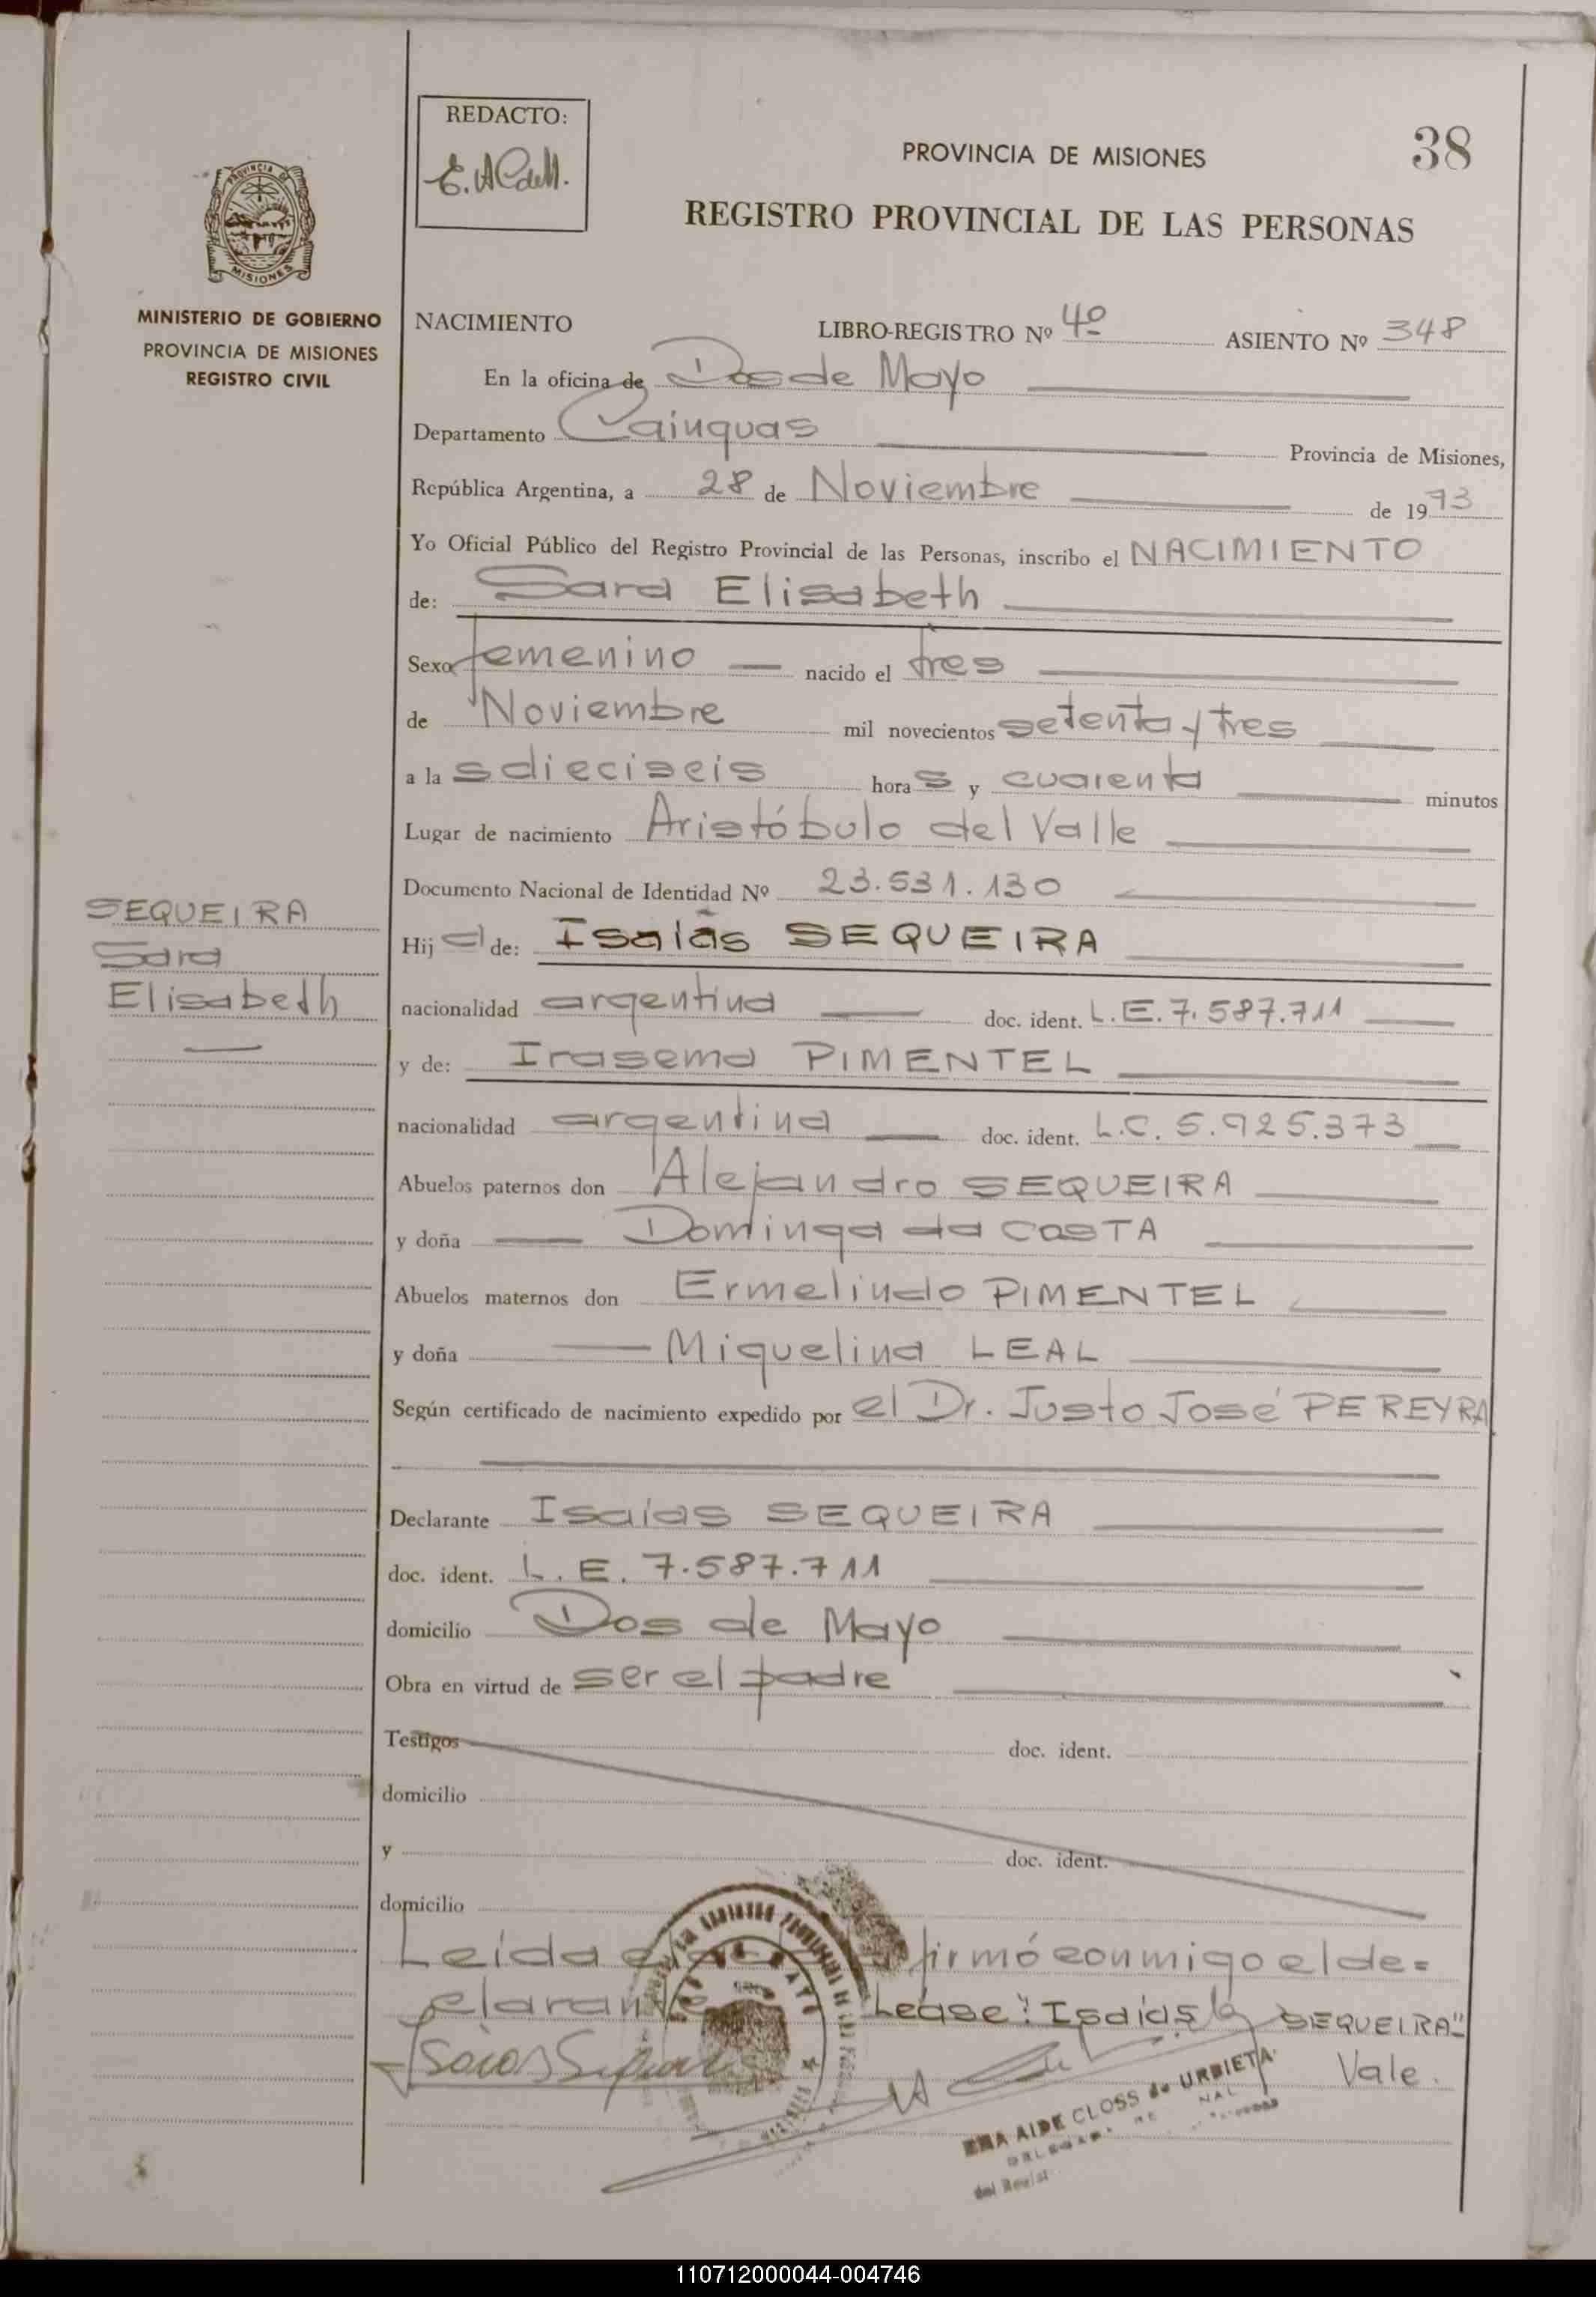 REDACTO:
38
PROVINCIA DE MISIONES
REGISTRO PROVINCIAL DE LAS PERSONAS
PROVINCIA DE
MISIONES
MINISTERIO DE GOBIERNO
PROVINCIA DE MISIONES
REGISTRO CIVIL
NACIMIENTO LIBRO-REGISTRO Nº 4º ASIENTO Nº 348
En la oficina de Dos de Mayo
Departamento Cainguas Provincia de Misiones,
República Argentina, a 28 de Noviembre de 1973
Yo Oficial Público del Registro Provincial de las Personas, inscribo el NACIMIENTO
de: Sara Elisabeth
Sexo femenino nacido el tres
de Noviembre mil novecientos setenta y tres
a la s dieciseis hora s y cuarenta minutos
Lugar de nacimiento Aristóbulo del Valle
Documento Nacional de Identidad Nº 23.531.130
SEQUEIRA
Sara
Elisabeth
Hij a de: Isaias SEQUEIRA
nacionalidad argentina doc. ident. L.E. 7.587.711
y de: Irasema PIMENTEL
nacionalidad argentina doc. ident. L.C. 5.925.373
Abuelos paternos don Alejandro SEQUEIRA
y doña Dominga da COSTA
Abuelos maternos don Ermelindo PIMENTEL
y doña Miguelina LEAL
Según certificado de nacimiento expedido por el Dr. Justo José PEREYRA
Declarante Isaías SEQUEIRA
doc. ident. L.E. 7.587.711
domicilio Dos de Mayo
Obra en virtud de ser el padre
Testigos doc. ident.
domicilio
y doc. ident.
domicilio
Leída firmó conmigo el de=
clarante Lease: "Isaías SEQUEIRA"
Vale.
AIDE CLOSS de URBIETA
110712000044-004746